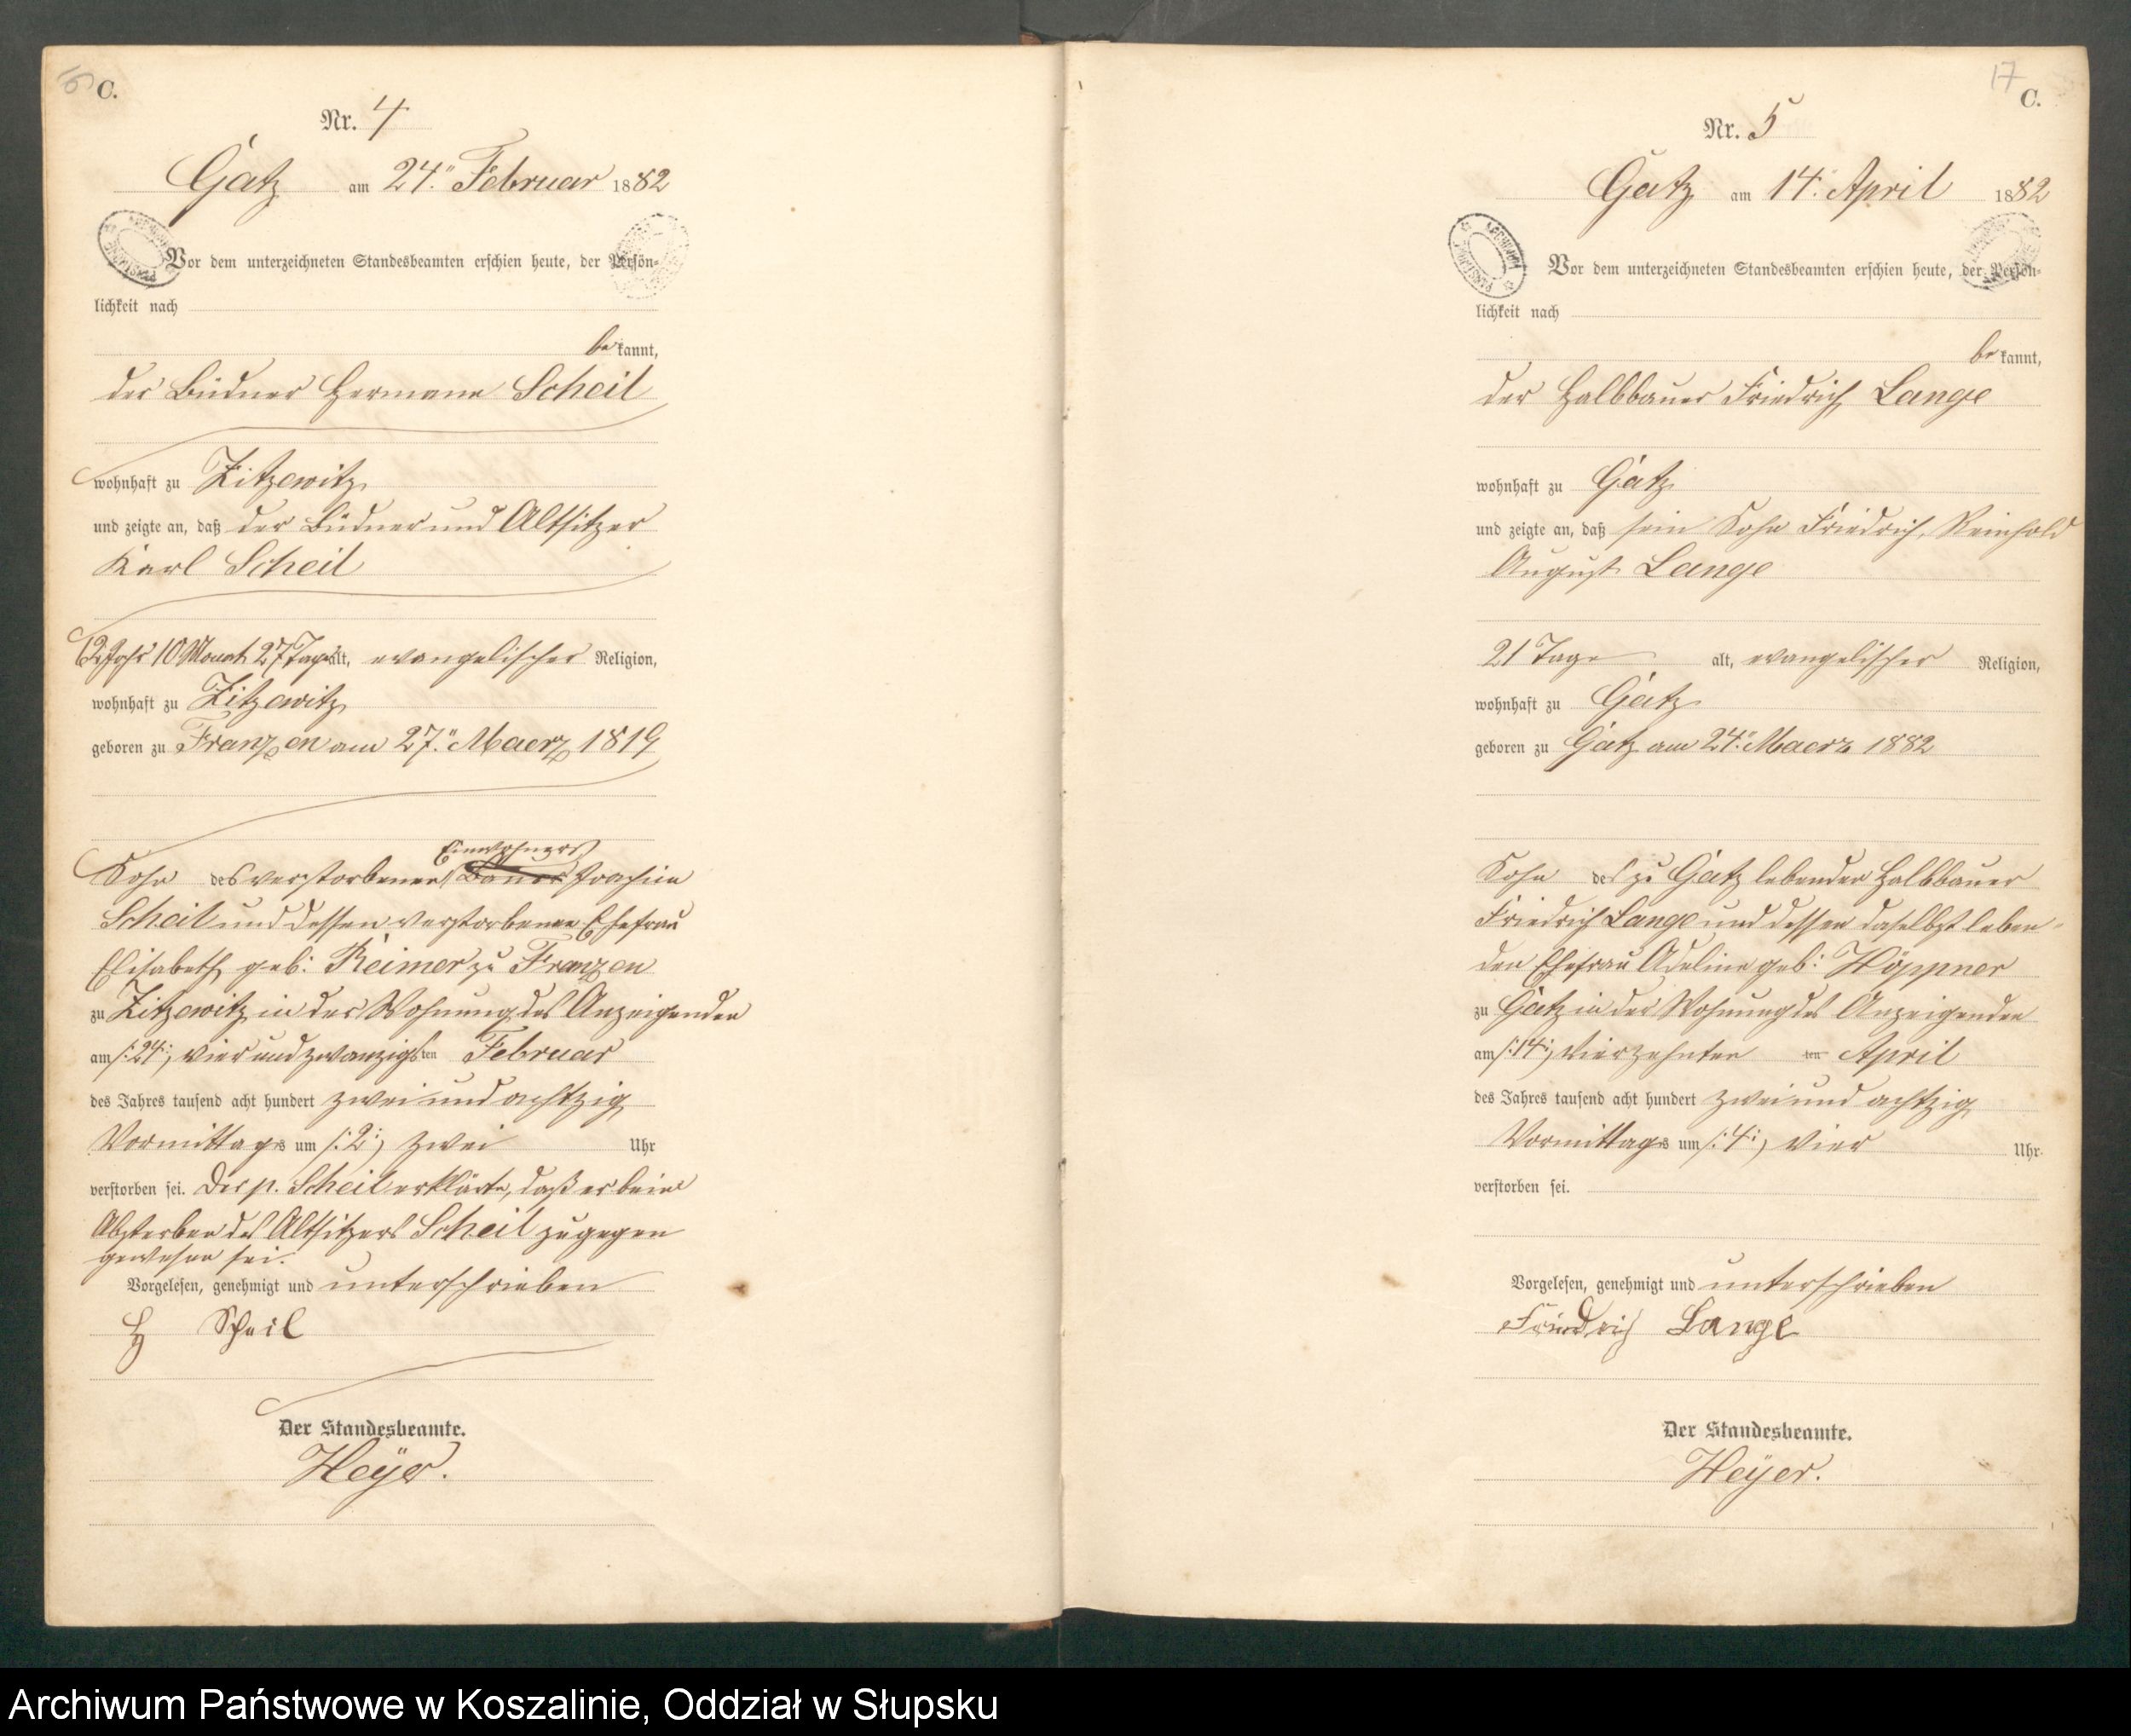 16
C.
Nr. 4
Gatz am 24.ⁿ Februar 1882
Vor dem unterzeichneten Standesbeamten erschien heute, der Persön-
lichkeit nach
be kannt,
der Büdner Hermann Scheil
wohnhaft zu Zitzewitz
und zeigte an, daß der Büdner und Altsitzer
Karl Scheil
62 Jahr 10 Monat 27 Tage alt, evangelischer Religion,
wohnhaft zu Zitzewitz
geboren zu Franzen am 27.ⁿ Maerz 1819
Einwohners
Sohn des verstorbenen Bauer Joachim
Scheil und dessen verstorbene Ehefrau
Elisabeth geb: Reimer zu Franzen
zu Zitzewitz in der Wohnung des Anzeigenden
am /:24:/ vier und zwanzigsten Februar
des Jahres tausend acht hundert zwei und achtzig
Vormittags um /:2:/ zwei Uhr
verstorben sei. Der p. Scheil erklärte, daß er beim
Absterben des Altsitzers Scheil zugegen
gewesen sei.
Vorgelesen, genehmigt und unterschrieben
H Scheil
Der Standesbeamte.
Heyer.
17
C.
Nr. 5
Gatz am 14.ⁿ April 1882
Vor dem unterzeichneten Standesbeamten erschien heute, der Persön-
lichkeit nach
be kannt,
der Halbbauer Friedrich Lange
wohnhaft zu Gatz
und zeigte an, daß sein Sohn Friedrich, Reinhold
August Lange
21 Tage alt, evangelischer Religion,
wohnhaft zu Gatz
geboren zu Gatz am 24.ⁿ Maerz 1882
Sohn des zu Gatz lebenden Halbbauer
Friedrich Lange und dessen daselbst leben-
den Ehefrau Adeline geb: Höppner
zu Gatz in der Wohnung des Anzeigenden
am /:14:/ vierzehnten ten April
des Jahres tausend acht hundert zwei und achtzig
Vormittags um /:4:/ vier Uhr
verstorben sei.
Vorgelesen, genehmigt und unterschrieben
Friedrich Lange
Der Standesbeamte.
Heyer.
Archiwum Państwowe w Koszalinie, Oddział w Słupsku